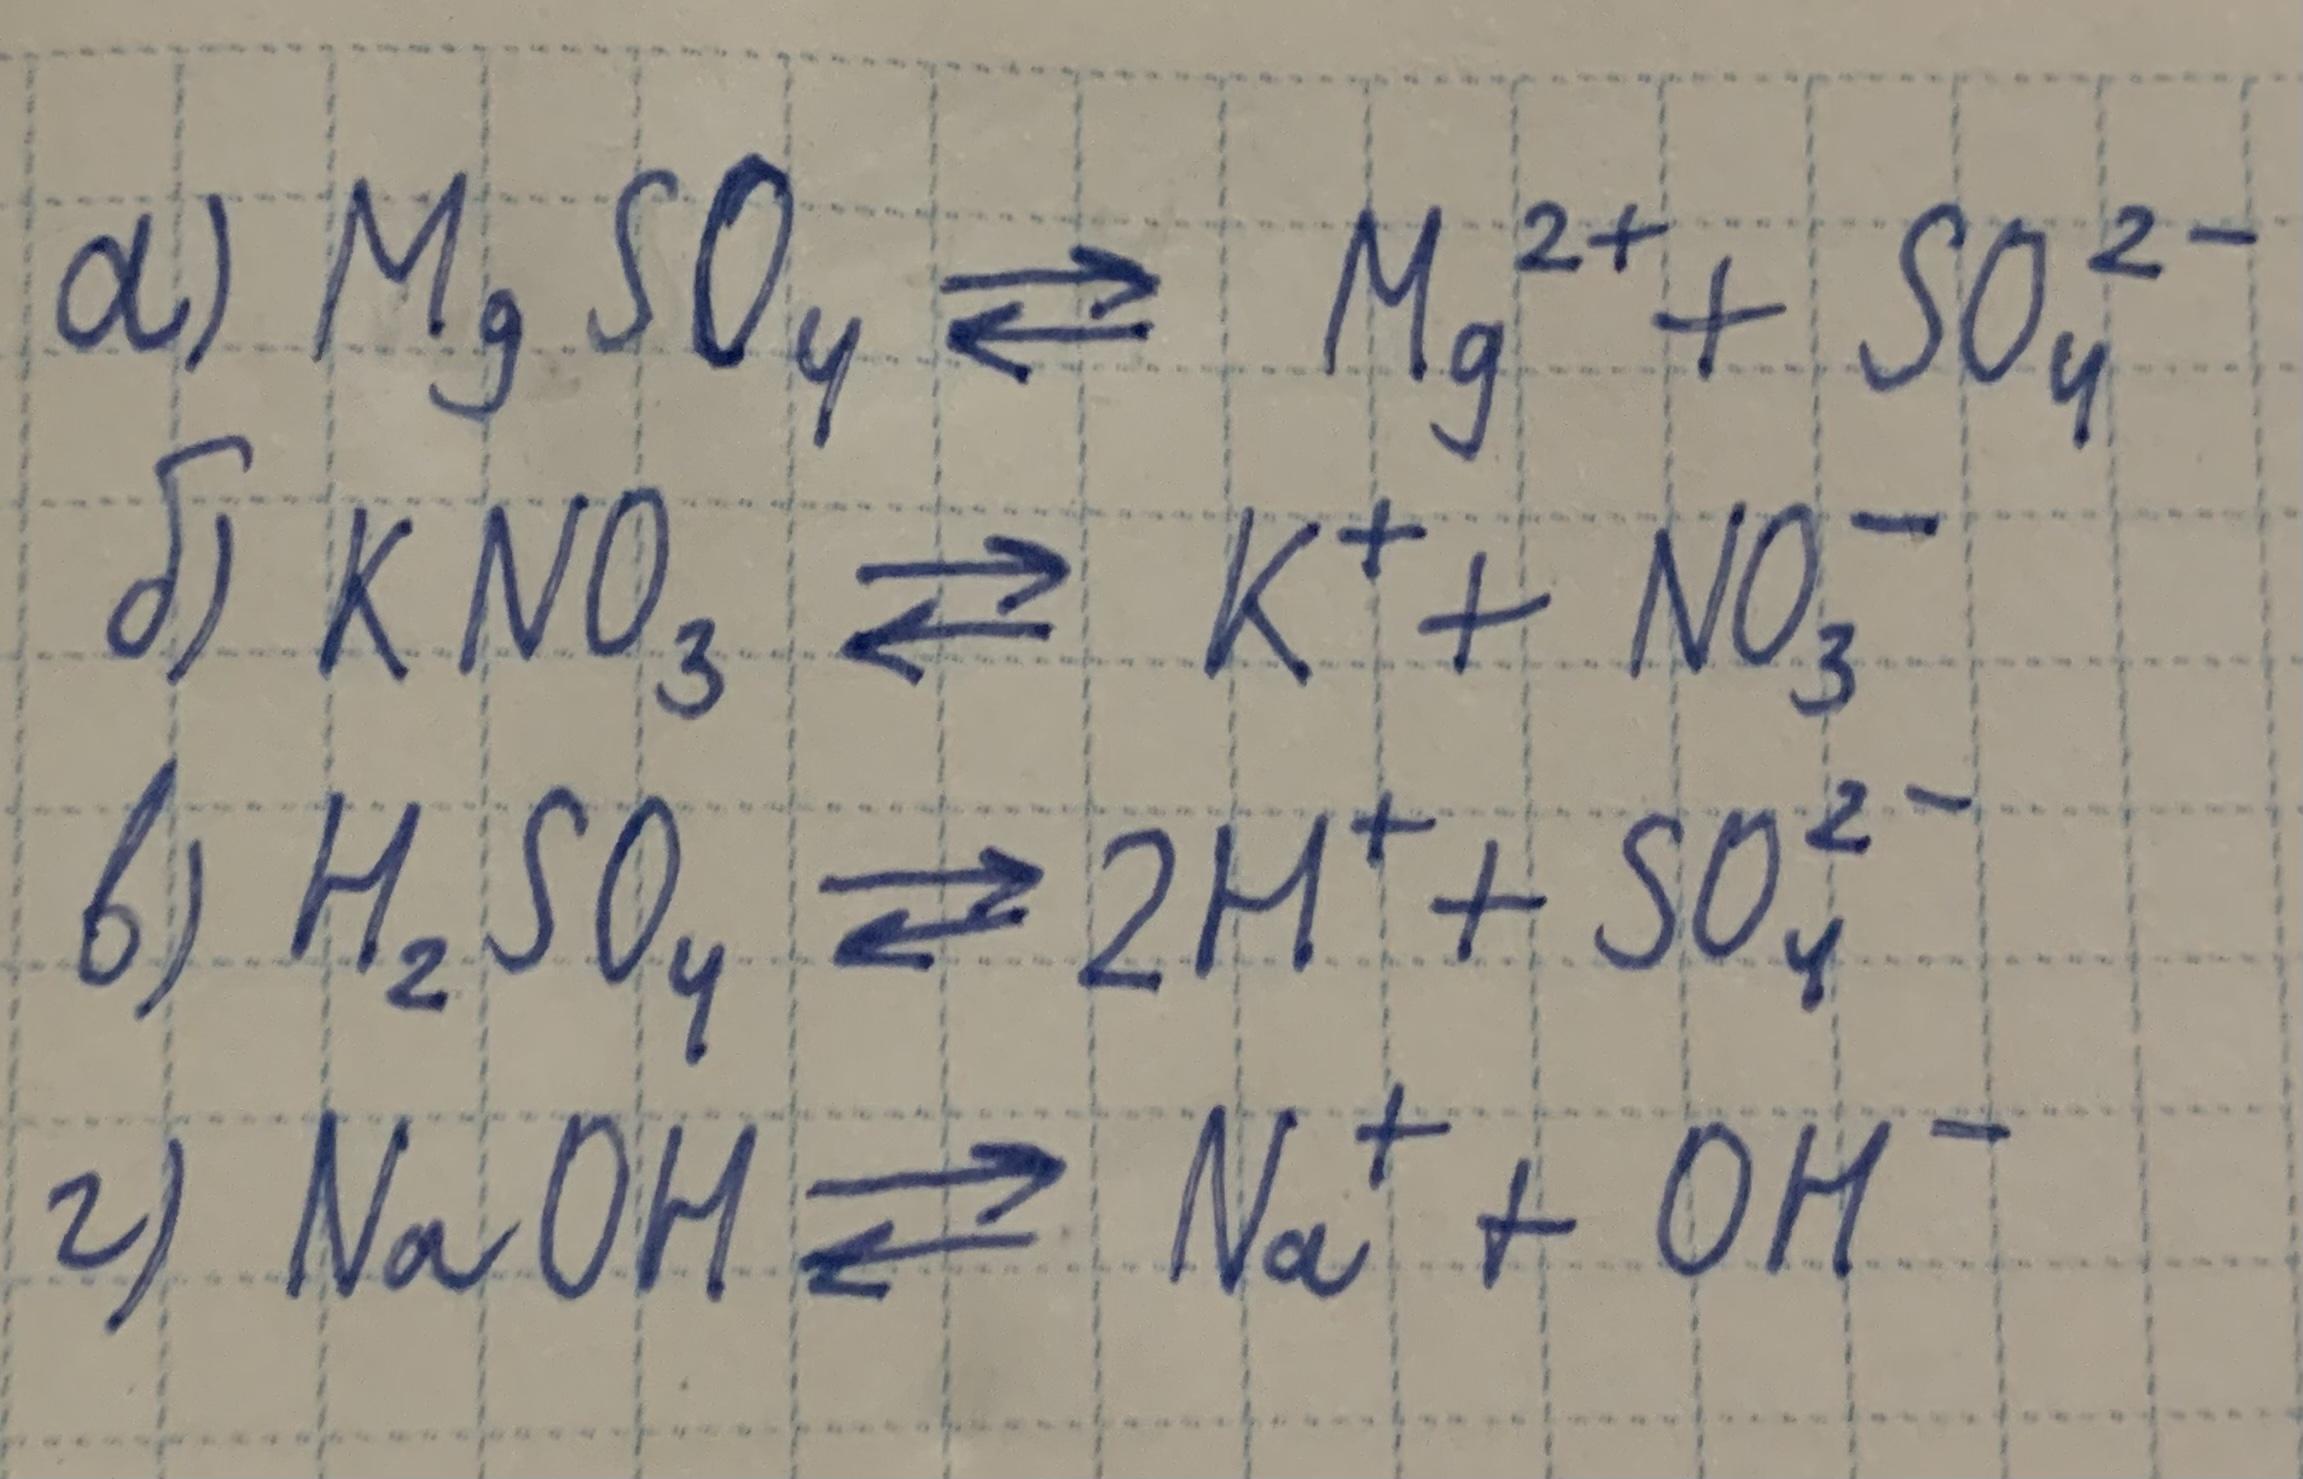 а) MgSO₄ ⇄ Mg²⁺ + SO₄²⁻
б) KNO₃ ⇄ K⁺ + NO₃⁻
в) H₂SO₄ ⇄ 2H⁺ + SO₄²⁻
г) NaOH ⇄ Na⁺ + OH⁻